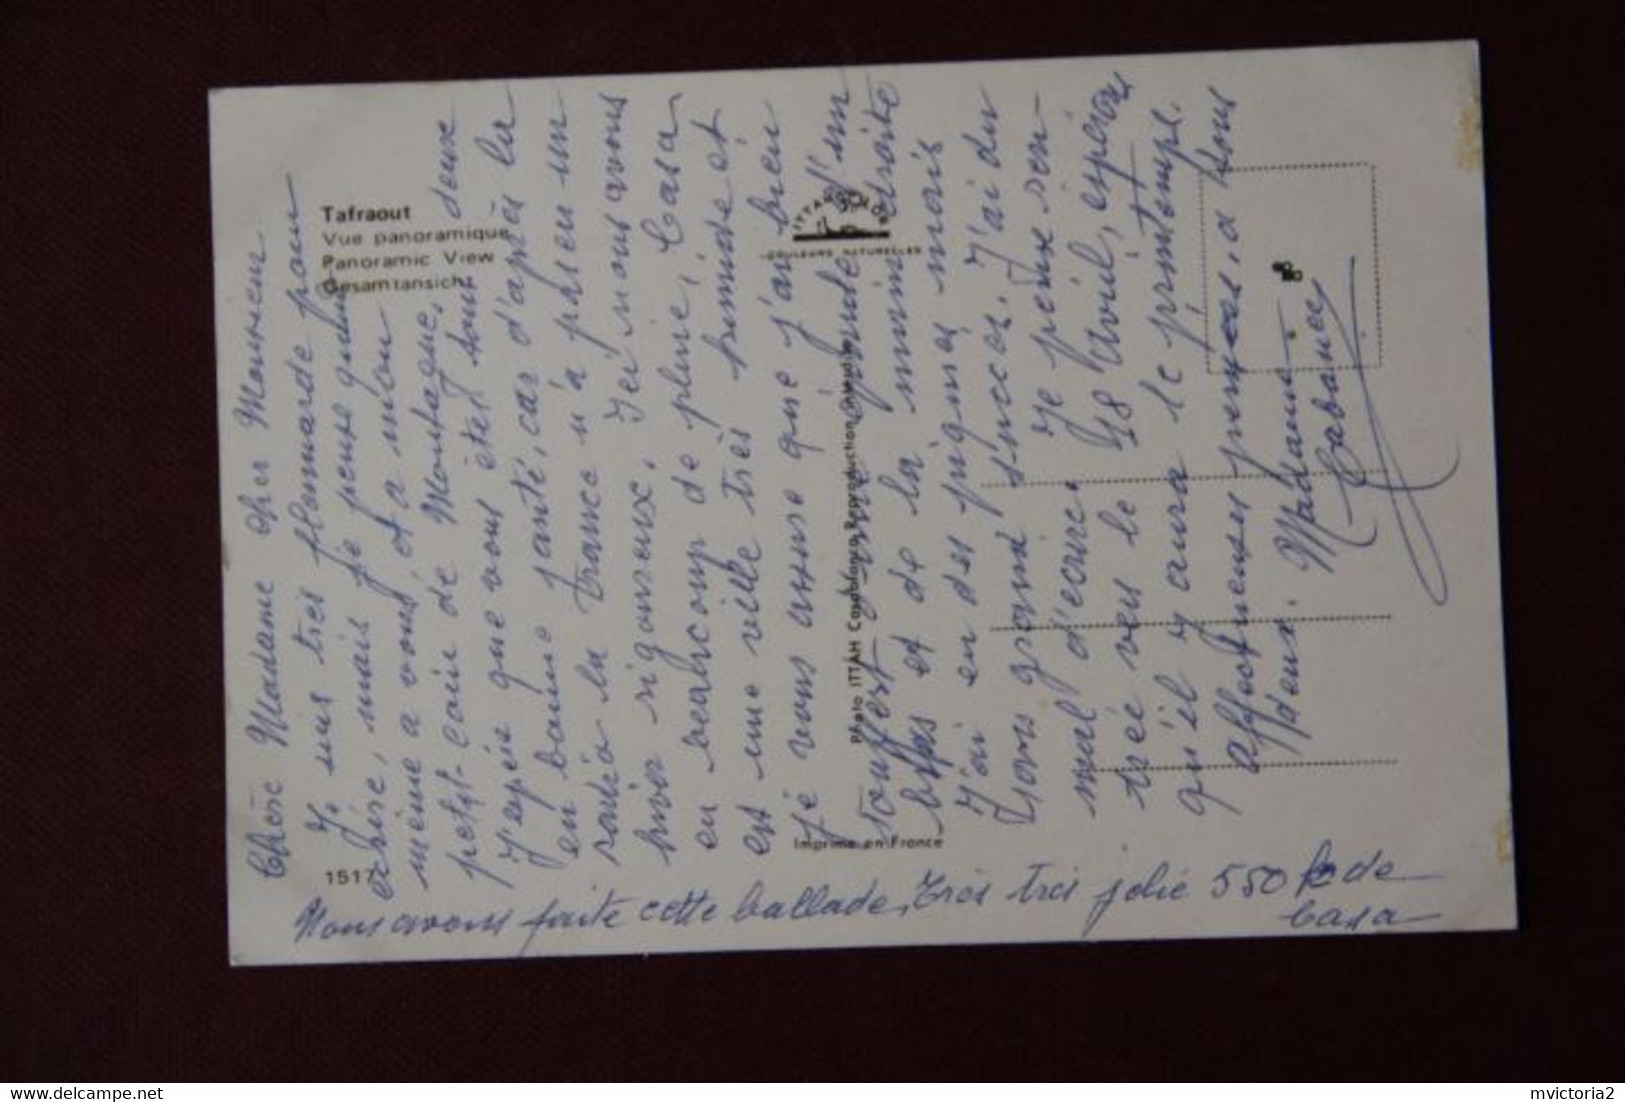 Tafraout
Vue panoramique
Panoramic View
Gesamtansicht
ITTAH COLOR
COULEURS NATURELLES
Photo ITTAH Casablanca Reproduction
Imprimé en France
1517
Chère Madame cher Monsieur
Je suis tres flemmarde pour
ecrire, mais je pense quand
même a vous, et a mon
petit coin de Montagne,
J'espère que vous êtes tous deux
en bonne santé, car d'après la
radio la France n'a pas eu un
hiver rigoureux. Ici nous avons
eu beaucoup de pluie, Casa
est une ville très humide et
je vous assure que j'ai bien
souffert d'un
bras et de la main droite
J'ai eu des piqures mais
sans grand succes. J'ai du
mal d'ecrire. Je pense ren-
trée vers le 18 Avril, espérons
qu'il y aura le printemps.
affectueuses pensées, a tous
deux. Madame
Cabanee
Nous avons faite cette ballade, très très jolie 550 k de
Casa
mvictoria2